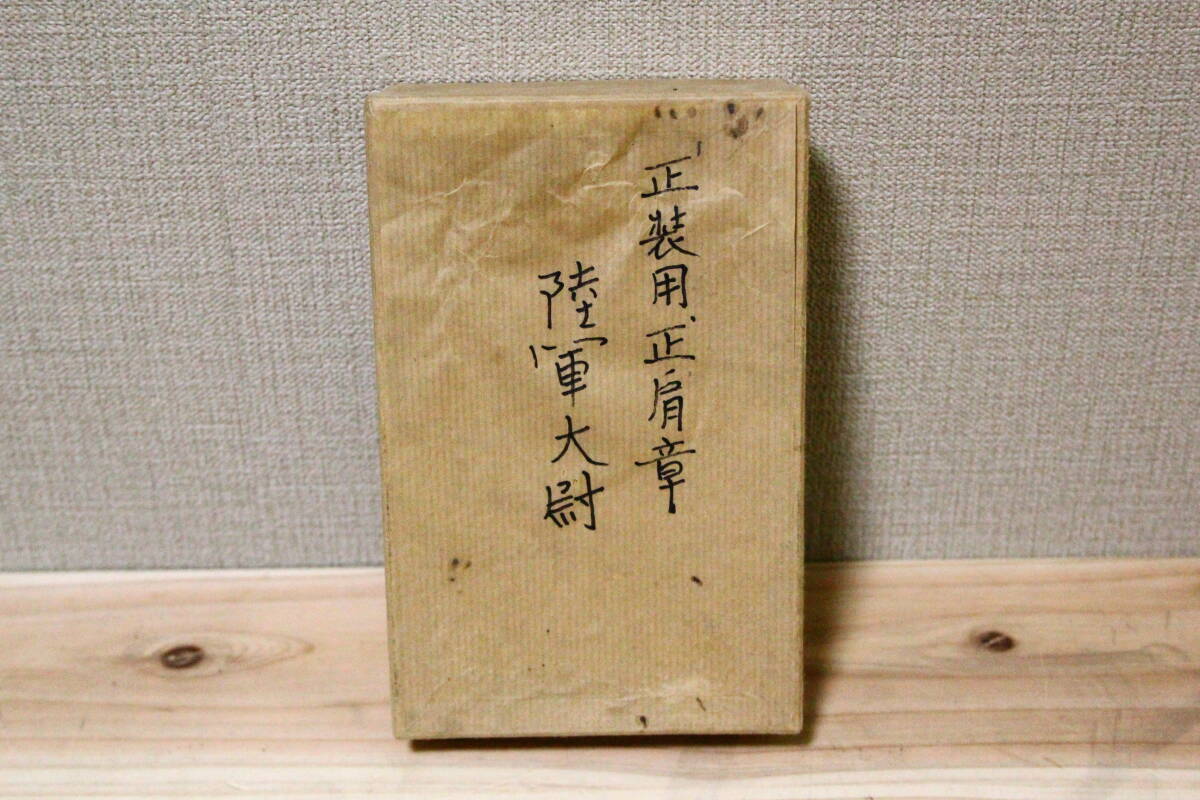 正装用正肩章
陸軍大尉